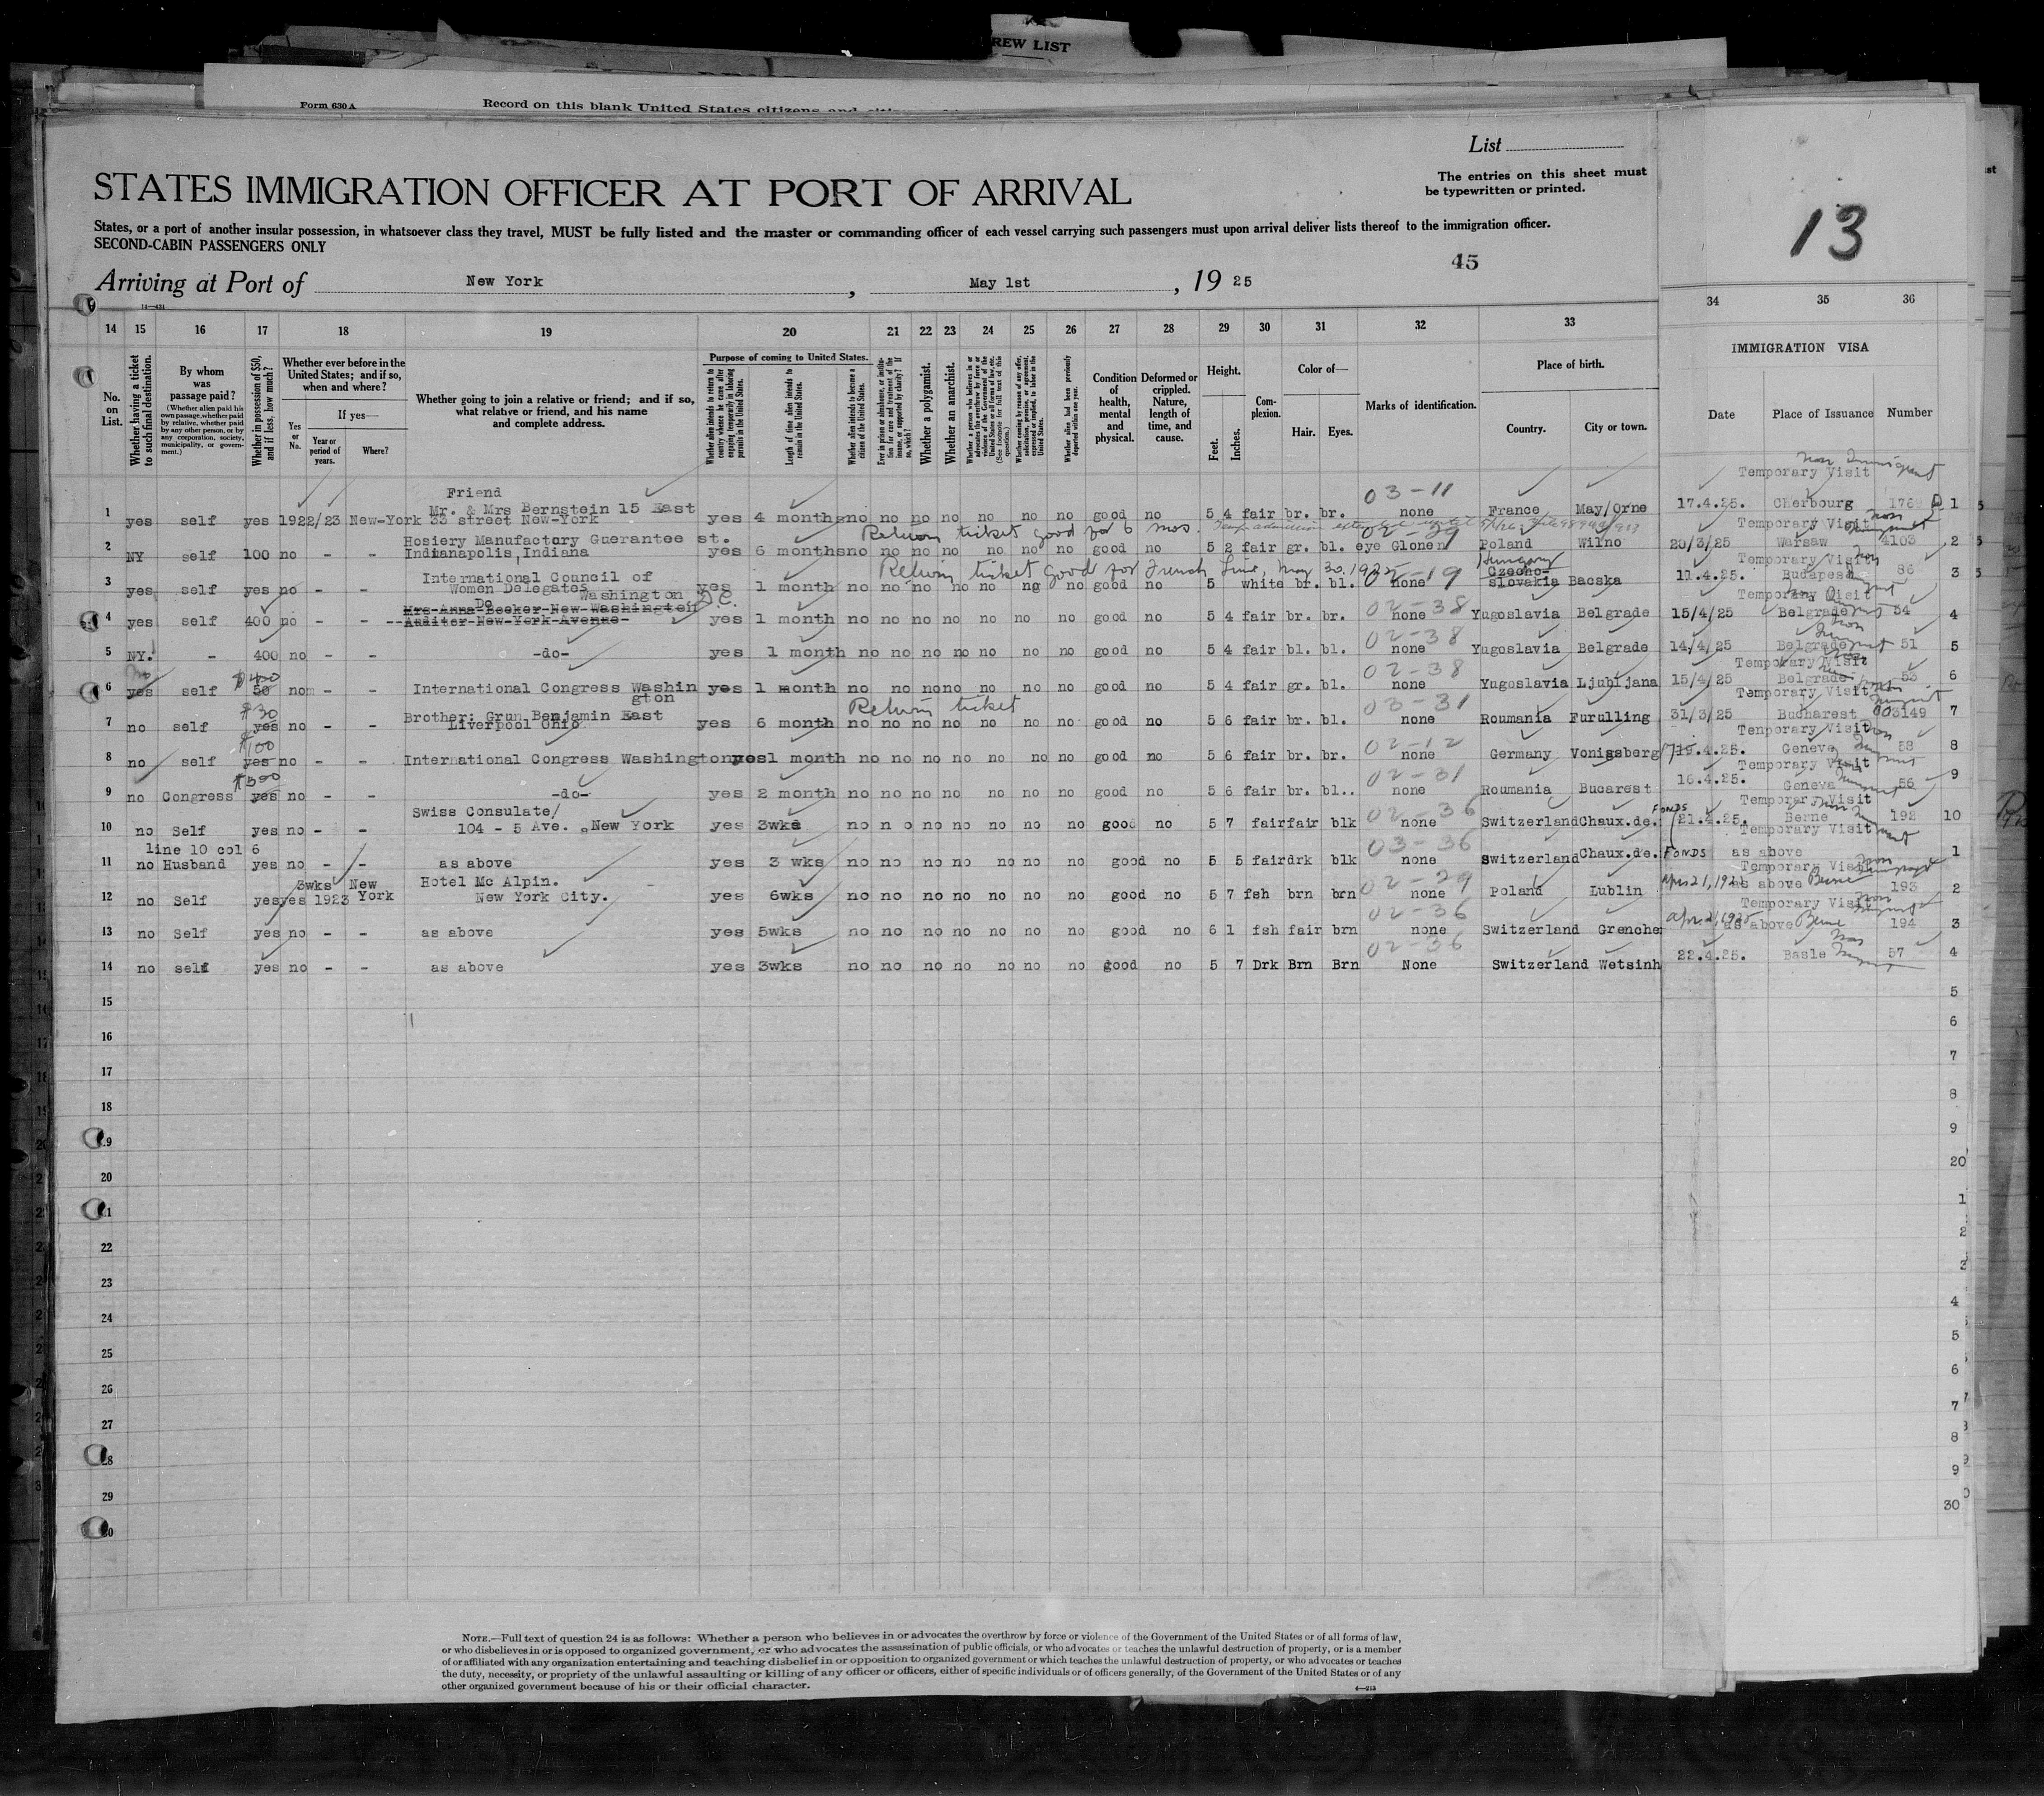 REW LIST
Form 630 A Record on this blank United States citizens and
List
The entries on this sheet must
be typewritten or printed.
STATES IMMIGRATION OFFICER AT PORT OF ARRIVAL
13
States, or a port of another insular possession, in whatsoever class they travel, MUST be fully listed and the master or commanding officer of each vessel carrying such passengers must upon arrival deliver lists thereof to the immigration officer.
SECOND-CABIN PASSENGERS ONLY
45
Arriving at Port of New York, May 1st, 19 25
14 15 16 17 18 19 20 21 22 23 24 25 26 27 28 29 30 31 32 33 34 35 36
No. on List.
Whether having a ticket to such final destination.
By whom was passage paid?
(Whether alien paid his own passage, whether paid by relative, whether paid by any other person, or by any corporation, society, municipality, or government.)
Whether in possession of $50, and if less, how much?
Whether ever before in the United States; and if so, when and where?
Yes or No.
If yes—
Year or period of years.
Where?
Whether going to join a relative or friend; and if so, what relative or friend, and his name and complete address.
Purpose of coming to United States.
Whether alien intends to return to country whence he came after engaging temporarily in laboring pursuits in the United States.
Length of time alien intends to remain in the United States.
Whether alien intends to become a citizen of the United States.
Ever in prison or almshouse, or institution for care and treatment of the insane, or supported by charity? If so, which?
Whether a polygamist.
Whether an anarchist.
Whether a person who believes in or advocates the overthrow by force or violence of the Government of the United States or all forms of law, etc. (See footnote for full text of this question.)
Whether coming by reason of any offer, solicitation, promise, or agreement, expressed or implied, to labor in the United States.
Whether alien had been previously deported within one year.
Condition of health, mental and physical.
Deformed or crippled. Nature, length of time, and cause.
Height.
Feet. Inches.
Complexion.
Color of—
Hair. Eyes.
Marks of identification.
Place of birth.
Country. City or town.
IMMIGRATION VISA
Date Place of Issuance Number
Non Immigrant
Temporary Visit
Friend 03-11
1 yes self yes 1922/23 New-York Mr. & Mrs Bernstein 15 East
33 street New-York yes 4 months no no no no no no no good no 5 4 fair br. br. none France May/Orne 17.4.25. Cherbourg 1
Return ticket good for 6 mos.
Temporary Visit
02-29
2 NY self 100 no - - Hosiery Manufactory Guerantee st.
Indianapolis, Indiana yes 6 months no no no no no no no good no 5 2 fair gr. bl. eye Glonen Poland Wilno 20/3/25 Warsaw 4103 2
Return ticket good for French Line, May 30, 1925
Temporary Visit
Hungary
02-19
3 yes self yes no - - International Council of
Women Delegates yes 1 month no no no no no no no good no 5 white br. bl. none Czecho-slovakia Bacska 11.4.25. Budapest 86 3
Washington D.C.
Temporary Visit
02-38
4 yes self 400 no - - Do
Mrs-Anna-Becker-New-Washington
Auditer-New-York-Avenue- yes 1 month no no no no no no no good no 5 4 fair br. br. none Yugoslavia Belgrade 15/4/25 Belgrade 54 4
02-38
5 NY. - 400 no - - -do- yes 1 month no no no no no no no good no 5 4 fair bl. bl. none Yugoslavia Belgrade 14/4/25 Belgrade 51 5
Temporary Visit
no $400 02-38
6 yes self 50 no - - International Congress Washin
gton yes 1 month no no no no no no no good no 5 4 fair gr. bl. none Yugoslavia Ljubljana 15/4/25 Belgrade 53 6
Return ticket
Temporary Visit
$30 03-31
7 no self yes no - - Brother: Grun Benjamin East
Liverpool Ohio yes 6 month no no no no no no no good no 5 6 fair br. bl. none Roumania Furulling 31/3/25 Bucharest 003149 7
Temporary Visit
$100 02-12
8 no self yes no - - International Congress Washington yes 1 month no no no no no no no good no 5 6 fair br. br. none Germany Vonigsberg 19.4.25. Geneve 58 8
Temporary Visit
$300 02-31
9 no Congress yes no - - -do- yes 2 month no no no no no no no good no 5 6 fair br. bl.. none Roumania Bucarest 16.4.25. Geneva 56 9
Temporary Visit
02-36 FONDS
10 no Self yes no - - Swiss Consulate/
104 - 5 Ave. New York yes 3wks no no no no no no no good no 5 7 fair fair blk none Switzerland Chaux.de. 21.4.25. Berne 192 10
Temporary Visit
line 10 col 6 03-36
11 no Husband yes no - - as above yes 3 wks no no no no no no no good no 5 5 fair drk blk none Switzerland Chaux.de. FONDS as above 1
Temporary Visit
02-29
12 no Self yes yes 3wks 1923 New York Hotel Mc Alpin.
New York City. yes 6wks no no no no no no no good no 5 7 fsh brn brn none Poland Lublin Apr 21, 1925 as above Berne 193 2
Temporary Visit
02-36
13 no Self yes no - - as above yes 5wks no no no no no no no good no 6 1 fsh fair brn none Switzerland Grenchen Apr 21, 1925 as above Berne 194 3
02-36
14 no self yes no - - as above yes 3wks no no no no no no no good no 5 7 Drk Brn Brn None Switzerland Wetsinh 22.4.25. Basle 57 4
15 5
16 6
17 7
18 8
19 9
20 20
21 1
22 2
23 3
24 4
25 5
26 6
27 7
28 8
29 9
30 30
NOTE.—Full text of question 24 is as follows: Whether a person who believes in or advocates the overthrow by force or violence of the Government of the United States or of all forms of law,
or who disbelieves in or is opposed to organized government, or who advocates the assassination of public officials, or who advocates or teaches the unlawful destruction of property, or is a member
of or affiliated with any organization entertaining and teaching disbelief in or opposition to organized government or which teaches the unlawful destruction of property, or who advocates or teaches
the duty, necessity, or propriety of the unlawful assaulting or killing of any officer or officers, either of specific individuals or of officers generally, of the Government of the United States or of any
other organized government because of his or their official character.